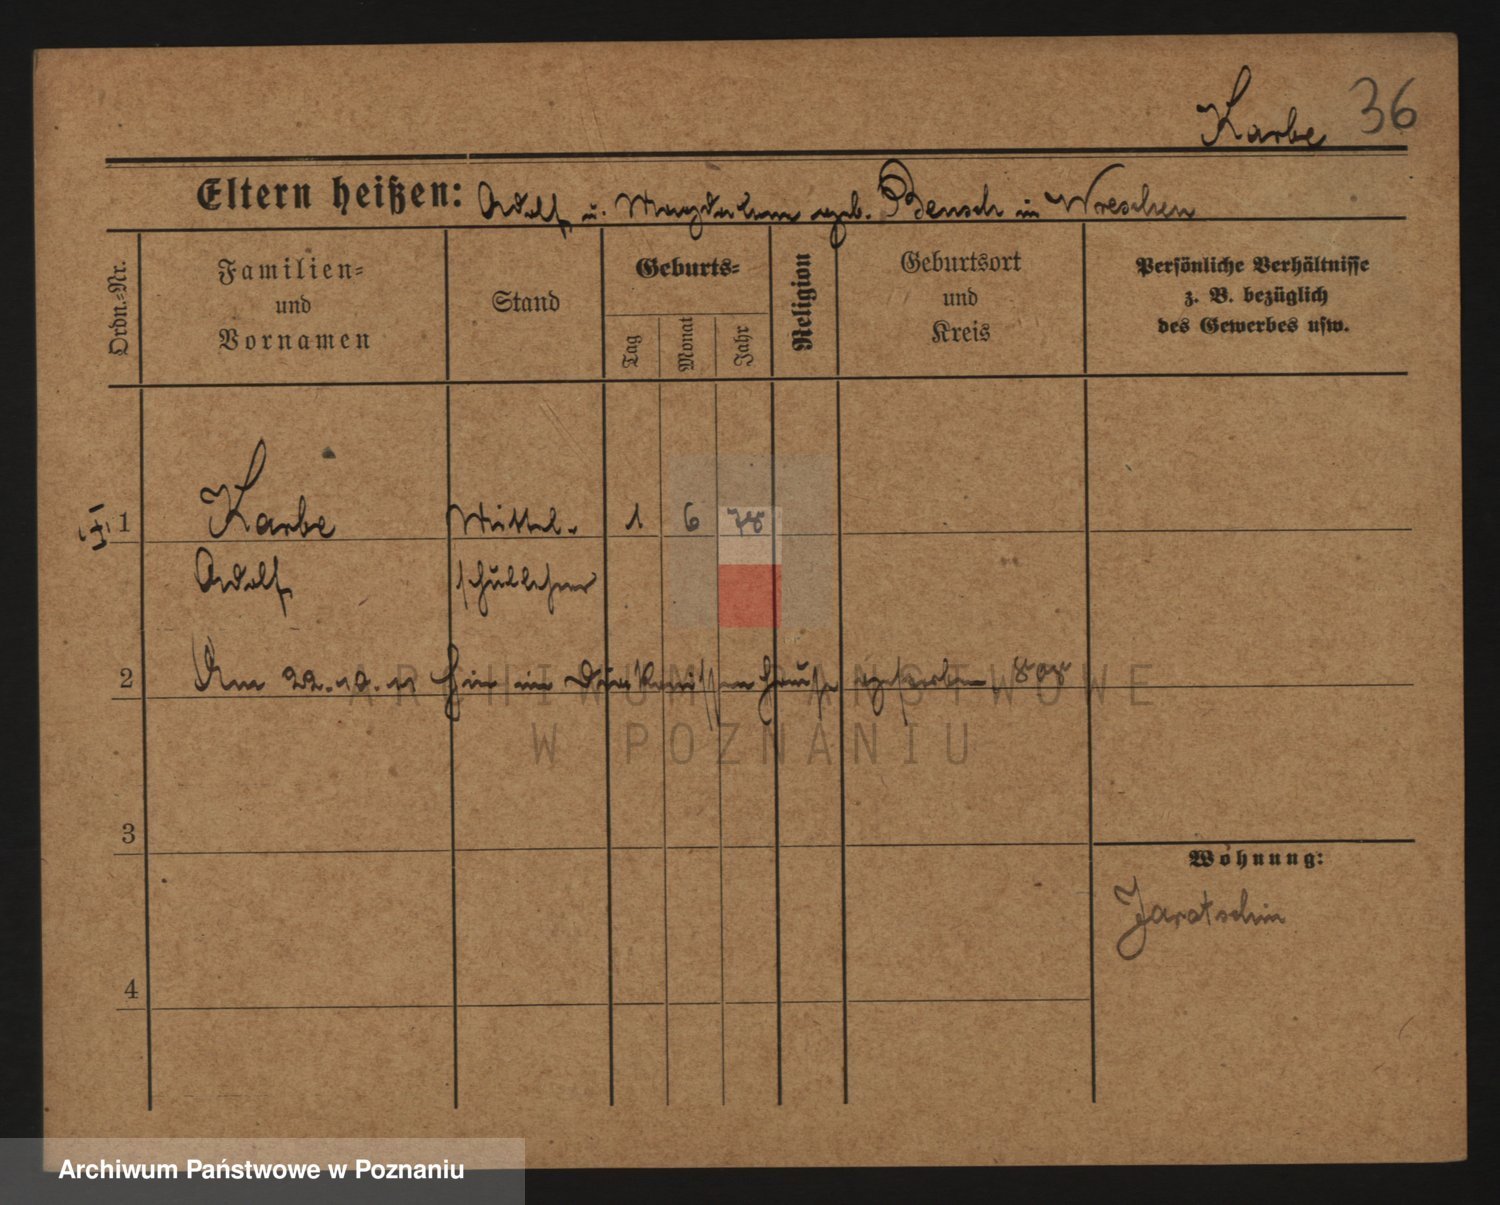 Karbe 36
Eltern heißen: Adolf u. Magdalena geb. Bensch in Wreschen
Ordn.-Nr.
Familien-
und
Vornamen
Stand
Geburts-
Tag
Monat
Jahr
Religion
Geburtsort
und
Kreis
Persönliche Verhältnisse
z. B. bezüglich
des Gewerbes usw.
1 Karbe Mittel- 1 6 78
Adolf schullehrer
2 Am 22.10.11 hier im Diakonissenhause gestorben 808
ARCHIWUM PAŃSTWOWE
W POZNANIU
3
Wohnung:
Jarotschin
4
Archiwum Państwowe w Poznaniu